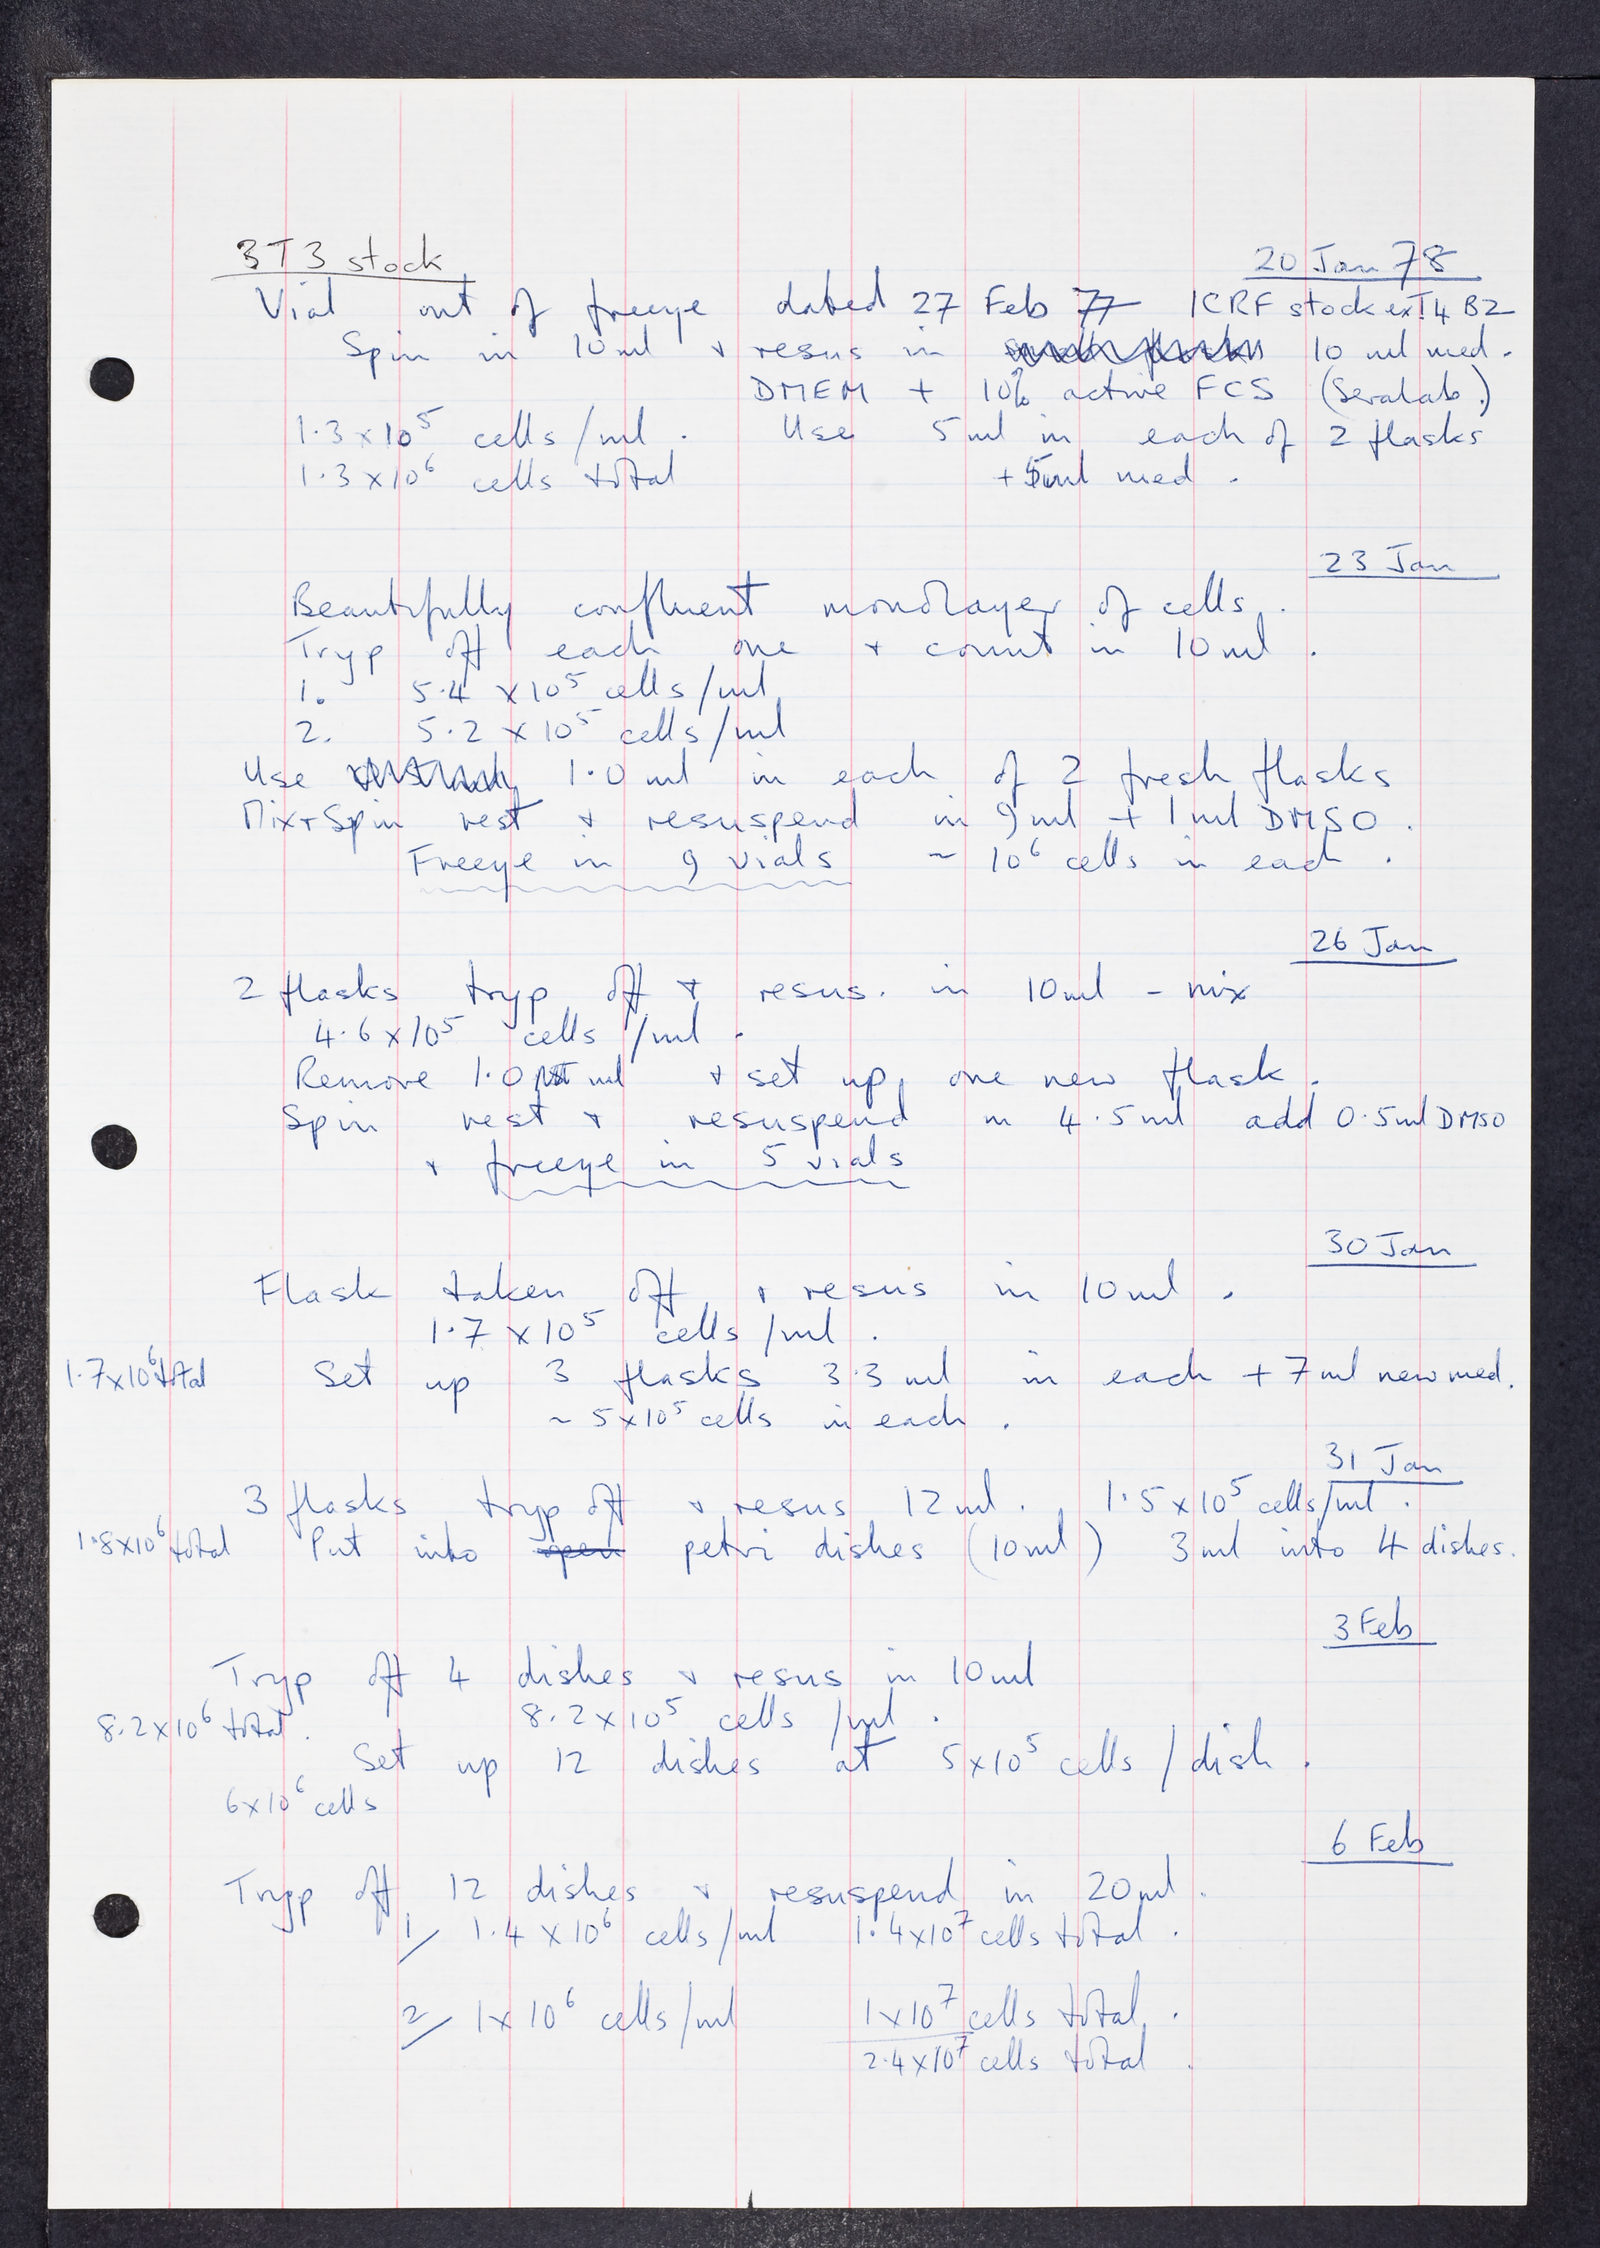 3T3 stock 20 Jan 78
Vial out of freeze dated 27 Feb 77 ICRF stock ex T4 B2
Spin in 10 ml + resus in 10 ml med.
DMEM + 10% active FCS (Seralab.)
1.3 x 10⁵ cells/ml. Use 5 ml in each of 2 flasks
1.3 x 10⁶ cells total + 5ml med.
23 Jan
Beautifully confluent monolayer of cells.
Tryp off each one + count in 10 ml.
1. 5.4 x 10⁵ cells/ml
2. 5.2 x 10⁵ cells/ml
Use 1.0 ml in each of 2 fresh flasks
Mix + Spin rest + resuspend in 9 ml + 1 ml DMSO.
Freeze in 9 vials ~ 10⁶ cells in each.
26 Jan
2 flasks tryp off + resus. in 10 ml - mix
4.6 x 10⁵ cells/ml.
Remove 1.0 ml + set up one new flask.
Spin rest + resuspend in 4.5 ml add 0.5 ml DMSO
+ freeze in 5 vials
30 Jan
Flask taken off + resus in 10 ml.
1.7 x 10⁵ cells/ml.
1.7x10⁶ total Set up 3 flasks 3.3 ml in each + 7 ml new med.
~ 5x10⁵ cells in each.
31 Jan
3 flasks tryp off + resus 12 ml. 1.5 x 10⁵ cells/ml.
1.8x10⁶ total Put into open petri dishes (10ml) 3 ml into 4 dishes.
3 Feb
Tryp off 4 dishes + resus in 10 ml
8.2 x 10⁶ total. 8.2 x 10⁵ cells/ml.
Set up 12 dishes at 5x10⁵ cells/dish.
6x10⁶ cells
6 Feb
Tryp off 12 dishes + resuspend in 20 ml.
1/ 1.4 x 10⁶ cells/ml 1.4x10⁷ cells total.
2/ 1x10⁶ cells/ml 1x10⁷ cells total.
2.4x10⁷ cells total.